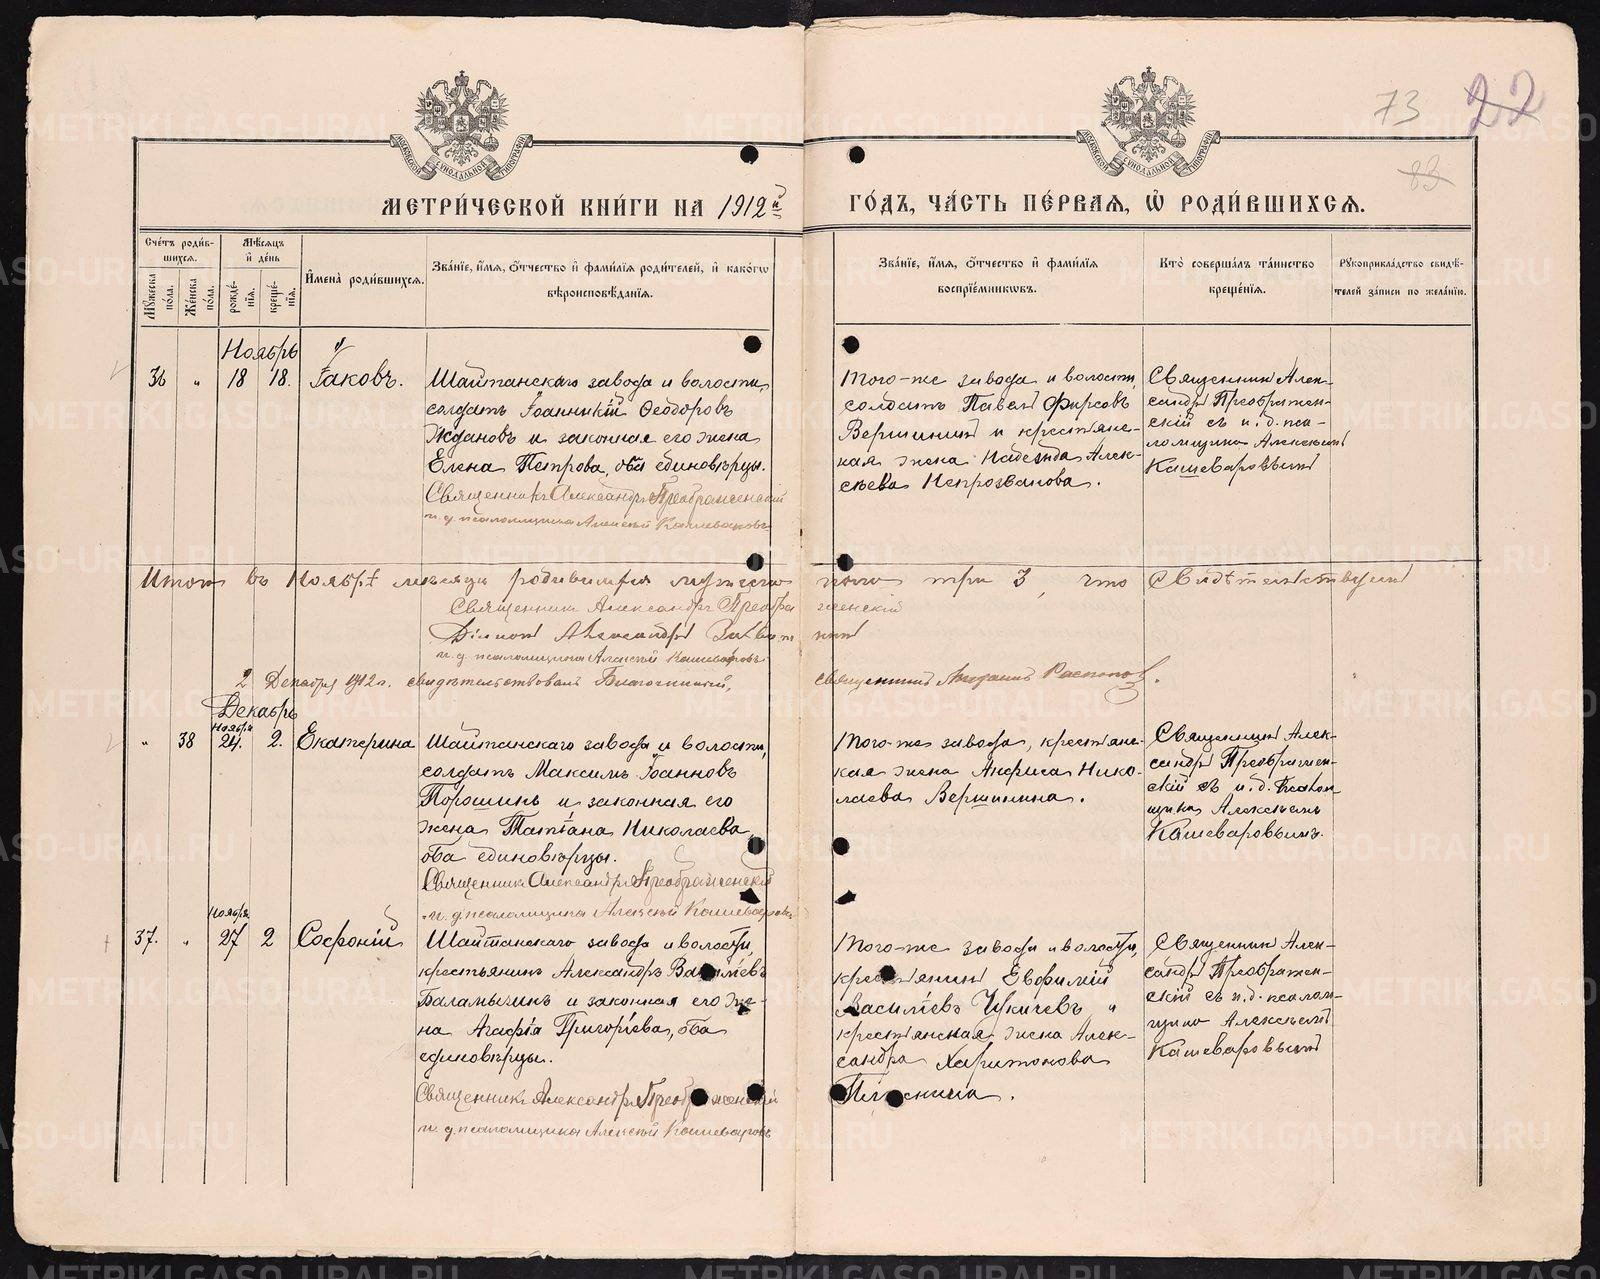 73 22
83
МЕТРИ́ЧЕСКОЙ КНИ́ГИ НА 1912й ГО́ДЪ, ЧА́СТЬ ПЕ́РВАЯ, Ѡ҆ РОДИ́ВШИХСЯ.
Сче́тъ роди́вшихся.
Мꙋ́жеска по́ла.
Же́нска по́ла.
Мѣ́сяцъ и҆ де́нь
рожде́нїѧ.
креще́нїѧ.
И҆мена̀ роди́вшихсѧ.
Зва́нїе, и҆́мѧ, ѻ҆́тчество и҆ фами́лїѧ роди́телей, и҆ како́гѡ
вѣроисповѣ́данїѧ.
Зва́нїе, и҆́мѧ, ѻ҆́тчество и҆ фами́лїѧ
воспрїе́мникѡвъ.
Кто̀ соверша́лъ та́инство
креще́нїѧ.
Рꙋкоприкла́дство свидѣ́-
телей за́писи по жела́нїю.
Ноябрь
36 " 18 18. Іаковъ.
Шайтанскаго завода и волости,
солдатъ Іоанникій Ѳеодоровъ
Ждановъ и законная его жена
Елена Петрова, оба единовѣрцы.
Священникъ Александръ Преображенскій
и. д. псаломщика Алексѣй Кашеваровъ
Того-же завода и волости,
солдатъ Павелъ Фирсовъ
Вершининъ и крестьянс-
кая жена Надежда Алек-
сѣева Непрозванова.
Священникъ Алек-
сандръ Преображен-
скій съ и. д. пса-
ломщика Алексѣемъ
Кашеваровымъ
Итого въ Ноябрѣ мѣсяцѣ родившихся мужеска пола три 3, что свидѣтельствуемъ
Священникъ Александръ Преображенскій
Діаконъ Александръ
и. д. псаломщика Алексѣй Кашеваровъ
2 Декабря 1912 г. свидѣтельствовалъ Благочинный, священникъ
Декабрь
" 38 Ноября 24. 2. Екатерина
Шайтанскаго завода и волости,
солдатъ Максимъ Іоанновъ
Порошинъ и законная его
жена Татіана Николаева,
оба единовѣрцы.
Священникъ Александръ Преображенскій
и. д. псаломщика Алексѣй Кашеваровъ
Того-же завода, крестьянс-
кая жена Анфиса Нико-
лаева Вершинина.
Священникъ Алек-
сандръ Преображен-
скій съ и. д. псалом-
щика Алексѣемъ
Кашеваровымъ.
37. " Ноября 27 2 Софроній
Шайтанскаго завода и волости,
крестьянинъ Александръ Васильевъ
Баламыгинъ и законная его же-
на Агафія Григоріева, оба
единовѣрцы.
Священникъ Александръ Преображенскій
и. д. псаломщика Алексѣй Кашеваровъ
Того-же завода и волости,
крестьянинъ Евфимій
Васильевъ и
крестьянская жена Алек-
сандра Харитонова
Священникъ Алек-
сандръ Преображен-
скій съ и. д. псалом-
щика Алексѣемъ
Кашеваровымъ
METRIKI.GASO-URAL.RU